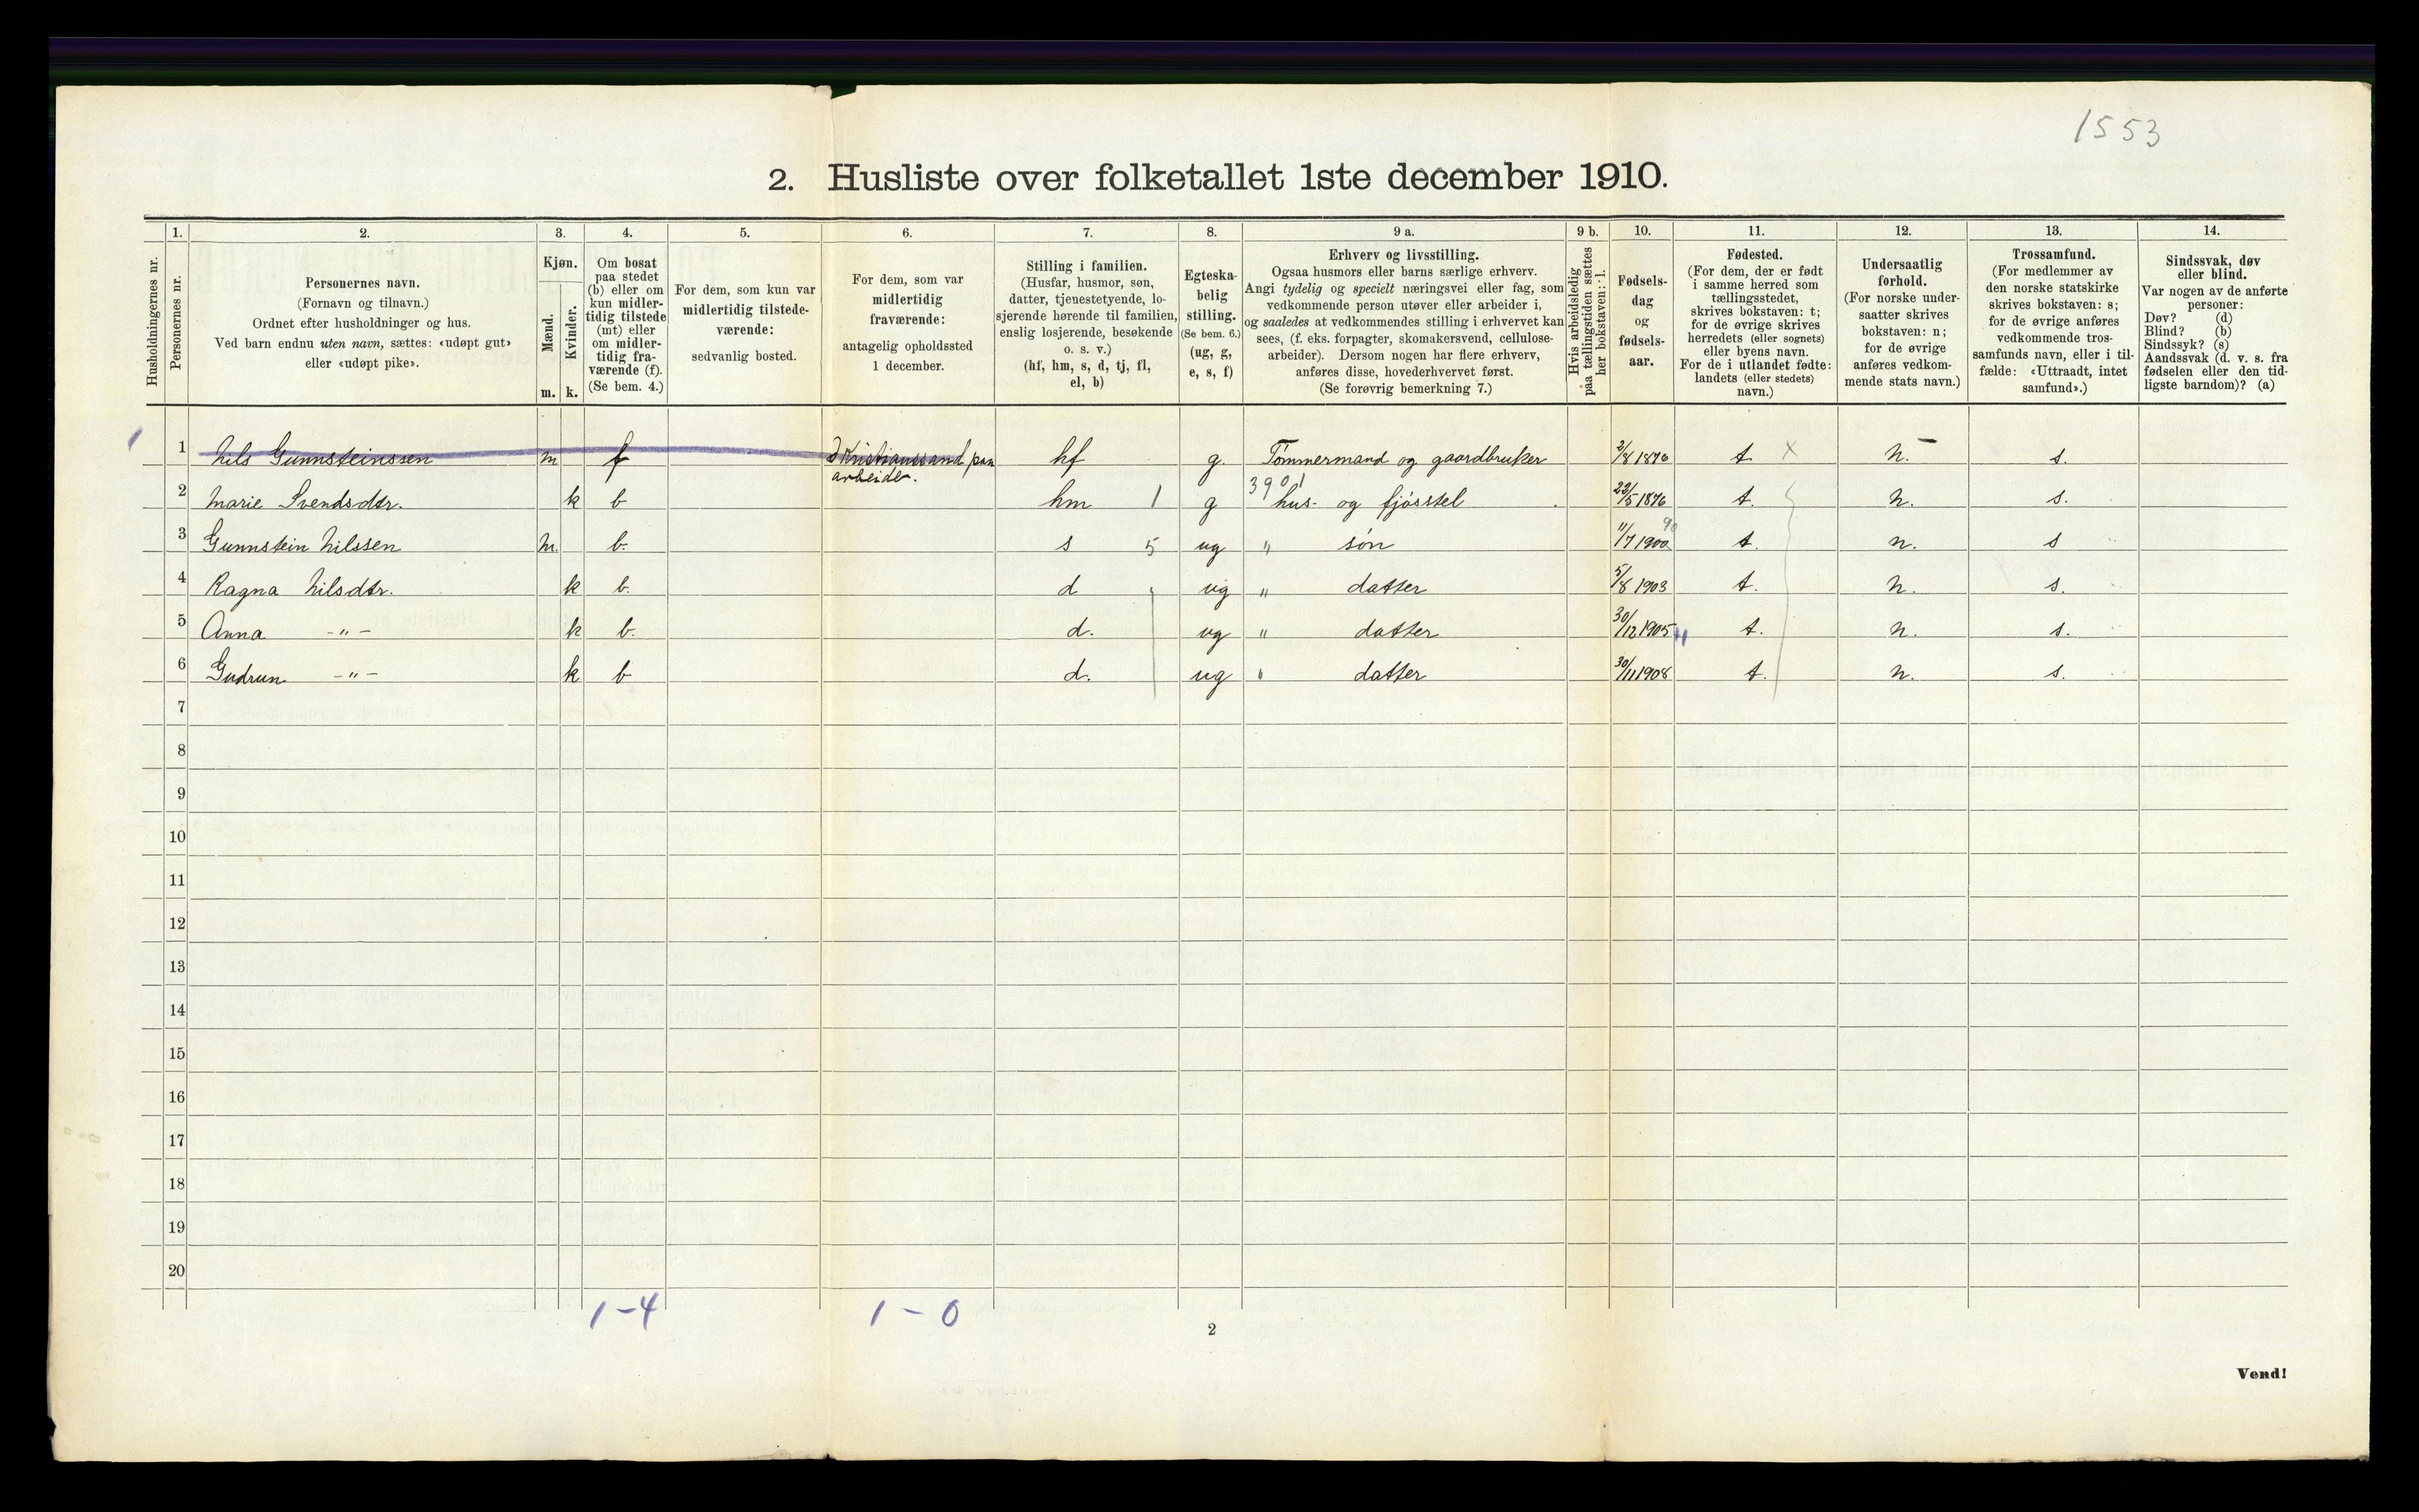 1553
2. Husliste over folketallet 1ste december 1910.
1. 2. 3. 4. 5. 6. 7. 8. 9 a. 9 b. 10. 11. 12. 13. 14.
Husholdningernes nr.
Personernes nr.
Personernes navn.
(Fornavn og tilnavn.)
Ordnet efter husholdninger og hus.
Ved barn endnu uten navn, sættes: «udøpt gut»
eller «udøpt pike».
Kjøn.
Mænd.
Kvinder.
m. k.
Om bosat
paa stedet
(b) eller om
kun midler-
tidig tilstede
(mt) eller
om midler-
tidig fra-
værende (f).
(Se bem. 4.)
For dem, som kun var
midlertidig tilstede-
værende:
sedvanlig bosted.
For dem, som var
midlertidig
fraværende:
antagelig opholdssted
1 december.
Stilling i familien.
(Husfar, husmor, søn,
datter, tjenestetyende, lo-
sjerende hørende til familien,
enslig losjerende, besøkende
o. s. v.)
(hf, hm, s, d, tj, fl,
el, b)
Egteska-
belig
stilling.
(Se bem. 6.)
(ug, g,
e, s, f)
Erhverv og livsstilling.
Ogsaa husmors eller barns særlige erhverv.
Angi tydelig og specielt næringsvei eller fag, som
vedkommende person utøver eller arbeider i,
og saaledes at vedkommendes stilling i erhvervet kan
sees, (f. eks. forpagter, skomakersvend, cellulose-
arbeider). Dersom nogen har flere erhverv,
anføres disse, hovederhvervet først.
(Se forøvrig bemerkning 7.)
Hvis arbeidsledig
paa tællingstiden sættes
her bokstaven: l.
Fødsels-
dag
og
fødsels-
aar.
Fødested.
(For dem, der er født
i samme herred som
tællingsstedet,
skrives bokstaven: t;
for de øvrige skrives
herredets (eller sognets)
eller byens navn.
For de i utlandet fødte:
landets (eller stedets)
navn.)
Undersaatlig
forhold.
(For norske under-
saatter skrives
bokstaven: n;
for de øvrige
anføres vedkom-
mende stats navn.)
Trossamfund.
(For medlemmer av
den norske statskirke
skrives bokstaven: s;
for de øvrige anføres
vedkommende tros-
samfunds navn, eller i til-
fælde: «Uttraadt, intet
samfund».)
Sindssvak, døv
eller blind.
Var nogen av de anførte
personer:
Døv? (d)
Blind? (b)
Sindssyk? (s)
Aandssvak (d. v. s. fra
fødselen eller den tid-
ligste barndom)? (a)
1 1 Nils Gunnsteinssen m f I Kristianssand paa hf g. Tømmermand og gaardbruker 2/8 1876 t. x n. s.
arbeide.
3901
2 Marie Svendsdtr. k b hm 1 g hus- og fjøsstel 23/5 1876 t. n. s.
90
3 Gunnstein Nilssen m. b. s 5 ug " søn 11/7 1900 t. n. s
4 Ragna Nilsdtr. k b. d ug " datter 5/8 1903 t. n. s.
5 Anna -"- k b. d. ug " datter 30/12 1905 t. n. s.
6 Gudrun -"- k b d. ug " datter 30/11 1908 t. n. s.
7
8
9
10
11
12
13
14
15
16
17
18
19
20
1-4 1-0
2
Vend!